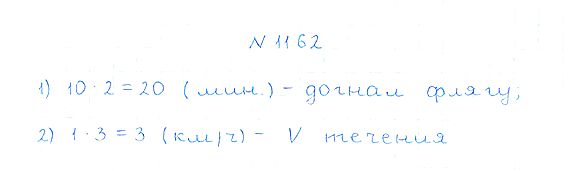 N 1162
1) 10 · 2 = 20 (мин.) - догнал флягу;
2) 1 · 3 = 3 (км/ч) - V течения